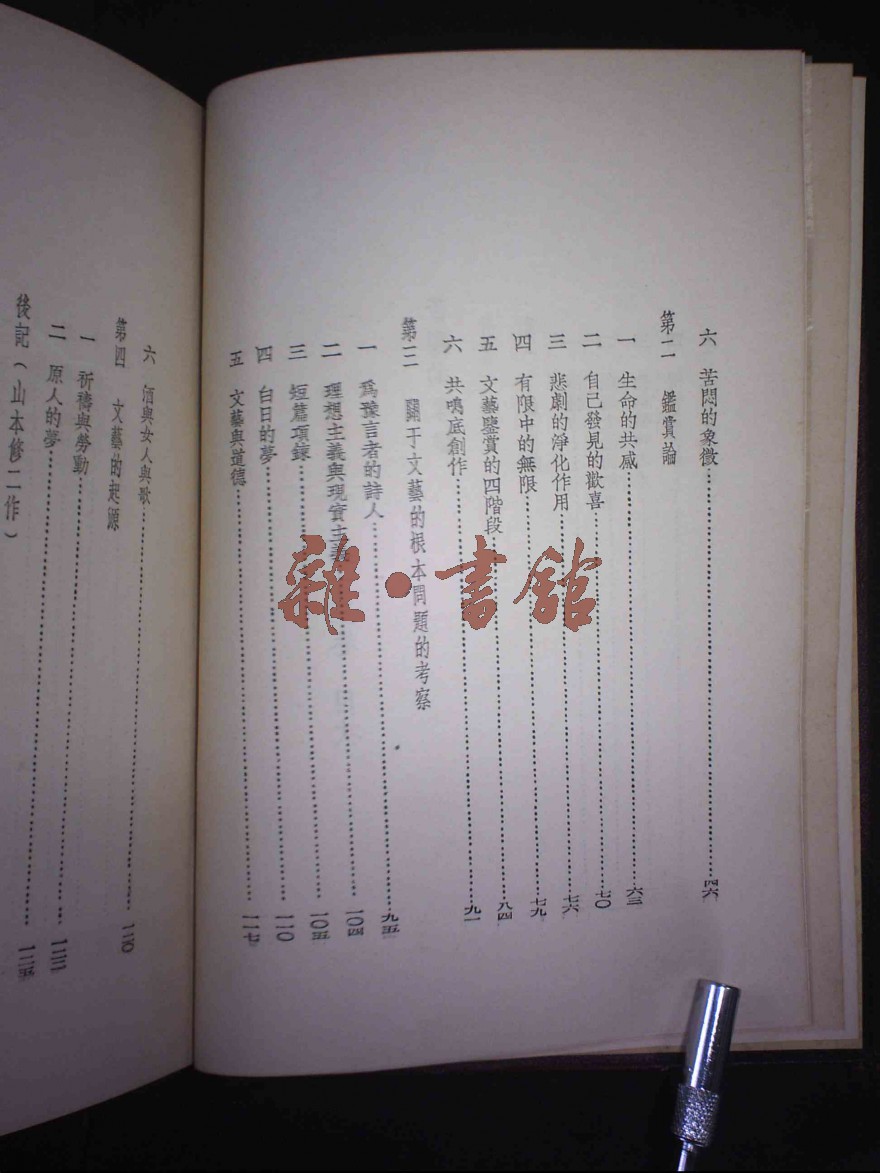 六　苦悶的象徵……四六
第二　鑑賞論
一　生命的共感……六三
二　自己發見的歡喜……七〇
三　悲劇的淨化作用……七六
四　有限中的無限……七九
五　文藝鑒賞的四階段……八四
六　共鳴底創作……九一
第三　關于文藝的根本問題的考察
一　爲豫言者的詩人……九五
二　理想主義與現實主義……一〇四
三　短篇項鍊……一〇五
四　白日的夢……一一〇
五　文藝與道德……一一七
六　酒與女人與歌……一二〇
第四　文藝的起源
一　祈禱與勞動……
二　原人的夢……
後記（山本修二作）
雜·書館